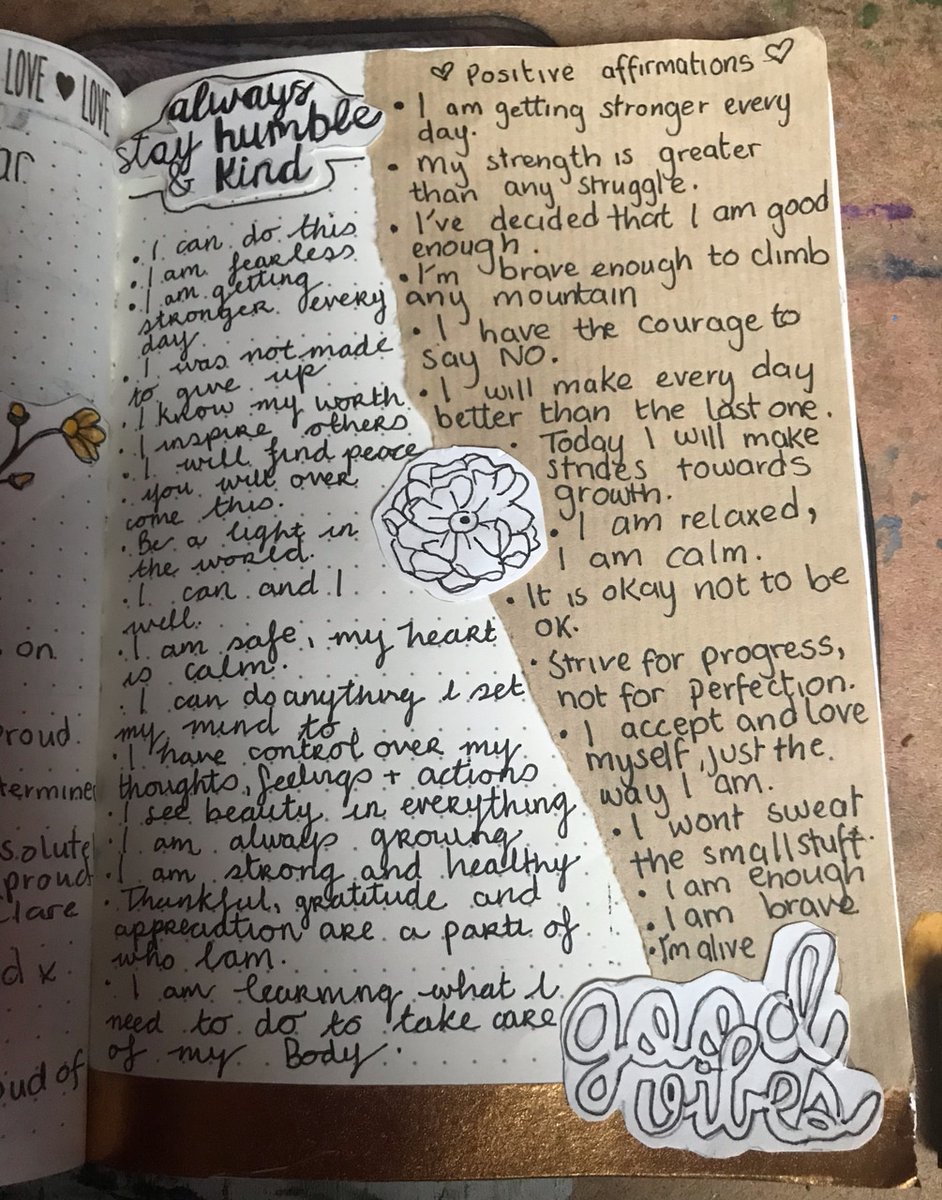 LOVE ♥ LOVE
ar
on
roud
termine
solute
proud
Clare
d x
oud of
always
stay humble
& kind
• I can do this
• I am fearless
• I am getting
stronger every
day.
• I was not made
to give up
• I know my worth
• I inspire others
• I will find peace
• you will over
come this.
• Be a light in
the world.
• I can and I
well.
• I am safe, my heart
is calm.
• I can do anything I set
my mind to
• I have control over my
thoughts, feelings + actions
• I see beauty in everything
• I am always growing
• I am strong and healthy
• Thankful, gratitude and
appreciation are a part of
who I am.
• I am learning what I
need to do to take care
of my Body.
♡ Positive affirmations ♡
• I am getting stronger every
day.
• My strength is greater
than any struggle.
• I've decided that I am good
enough.
• I'm brave enough to climb
any mountain
• I have the courage to
say NO.
• I will make every day
better than the last one.
• Today I will make
strides towards
growth.
• I am relaxed,
I am calm.
• It is okay not to be
OK.
• Strive for progress,
not for perfection.
• I accept and love
myself, just the
way I am.
• I wont sweat
the small stuff.
• I am enough
• I am brave
• I'm alive
good
vibes